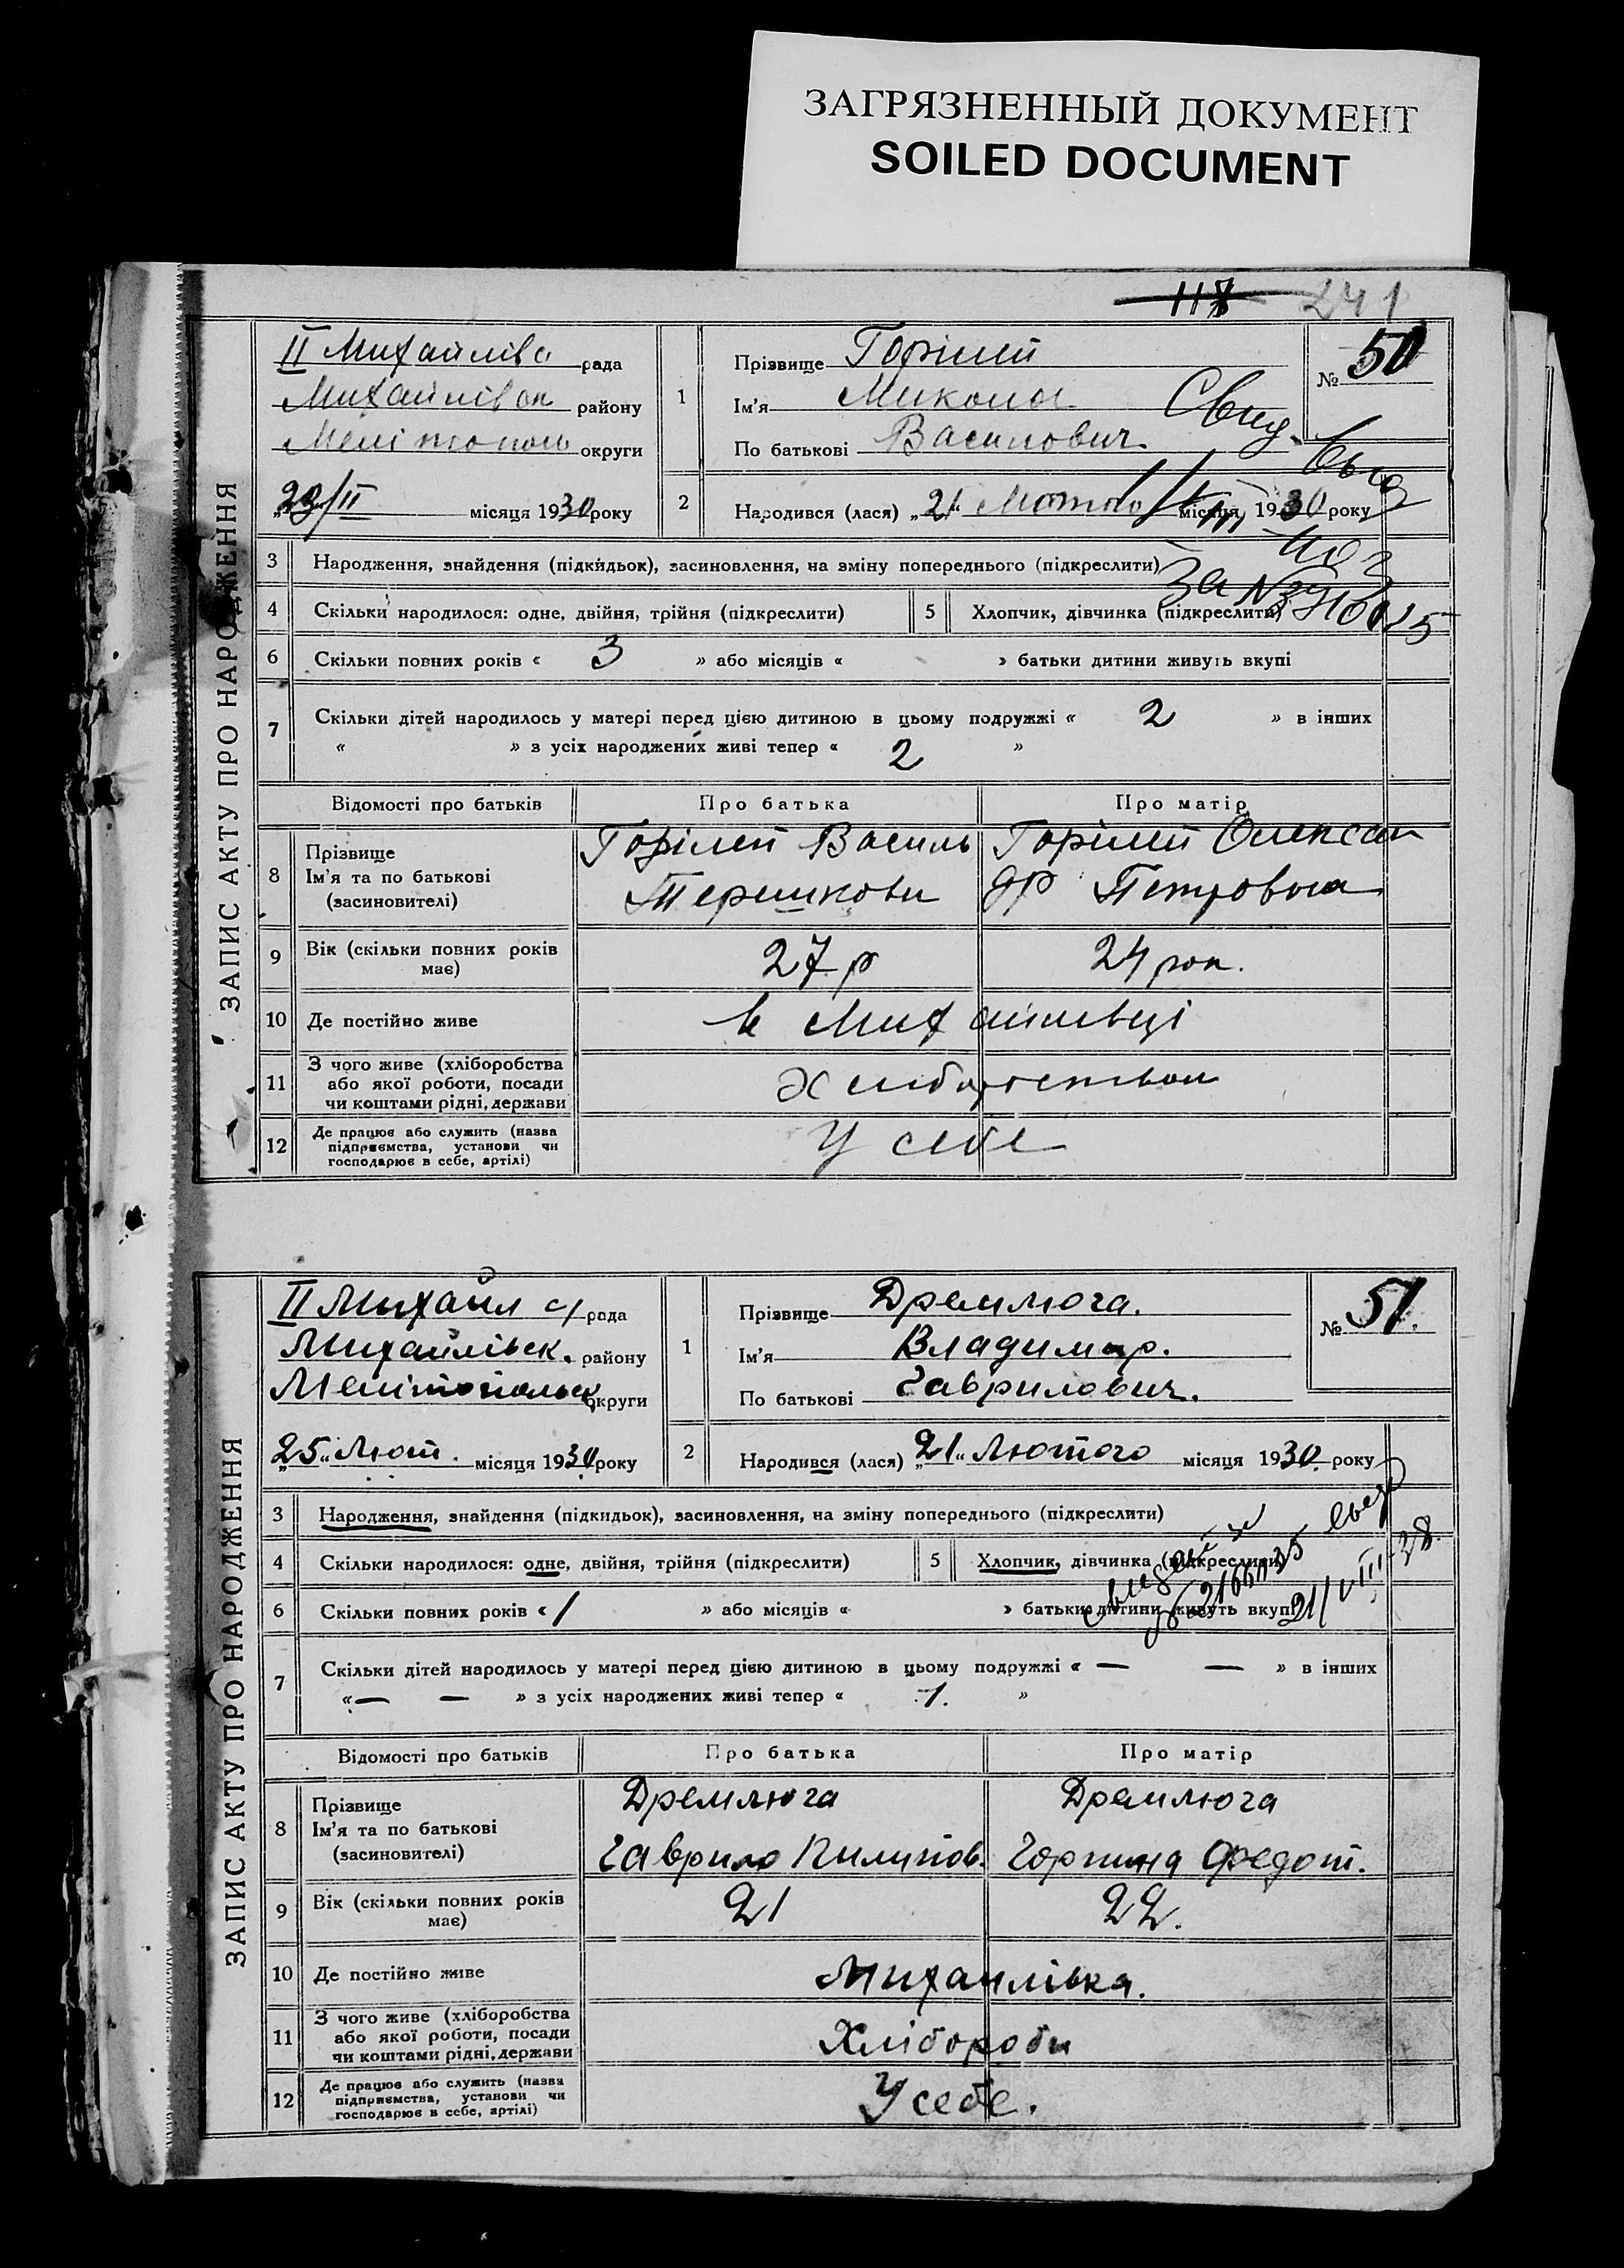 ЗАГРЯЗНЕННЫЙ ДОКУМЕНТ
SOILED DOCUMENT
117 241
ЗАПИС АКТУ ПРО НАРОДЖЕННЯ
II Михайлівс рада
Михайлівск району
Мелітополь округи
„23/II місяця 1930 року
1 Прізвище Горілей
Ім'я Микола
По батькові Василович.
№ 50
Свид.
2 Народився (лася) „21“ Лютого місяця 1930 року
3 Народження, знайдення (підкидьок), засиновлення, на зміну попереднього (підкреслити)
4 Скільки народилося: одне, двійня, трійня (підкреслити) 5 Хлопчик, дівчинка (підкреслити)
за №
6 Скільки повних років « 3 » або місяців « » батьки дитини живуть вкупі
7 Скільки дітей народилось у матері перед цією дитиною в цьому подружжі « 2 » в інших
« » з усіх народжених живі тепер « 2 »
Відомості про батьків Про батька Про матір
8 Прізвище
Ім'я та по батькові
(засиновителі)
Горілей Василь
Терешкови
Горілей Олексан
др Петровна
9 Вік (скільки повних років
має)
27 р 24 рок.
10 Де постійно живе в Михайливці
11 З чого живе (хліборобства
або якої роботи, посади
чи коштами рідні, держави
12 Де працює або служить (назва
підприємства, установи чи
господарює в себе, артілі)
У себе
ЗАПИС АКТУ ПРО НАРОДЖЕННЯ
II Михайл с/рада
Михайлівськ. району
Мелітопольск округи
„25“ Лют. місяця 1930 року
1 Прізвище Дремлюга.
Ім'я Владимир.
По батькові Гаврилович.
№ 51.
2 Народився (лася) „21“ Лютого місяця 1930. року
3 Народження, знайдення (підкидьок), засиновлення, на зміну попереднього (підкреслити)
4 Скільки народилося: одне, двійня, трійня (підкреслити) 5 Хлопчик, дівчинка (підкреслити)
21/VIII-38.
6 Скільки повних років « 1 » або місяців « » батьки дитини живуть вкупі
7 Скільки дітей народилось у матері перед цією дитиною в цьому подружжі « — — » в інших
« — — » з усіх народжених живі тепер « 1. »
Відомості про батьків Про батька Про матір
8 Прізвище
Ім'я та по батькові
(засиновителі)
Дремлюга
Гаврило Пилипов.
Дремлюга
Горпина Федот.
9 Вік (скільки повних років
має)
21 22.
10 Де постійно живе Михайлівка.
11 З чого живе (хліборобства
або якої роботи, посади
чи коштами рідні, держави
Хлібороби
12 Де працює або служить (назва
підприємства, установи чи
господарює в себе, артілі)
У себе.